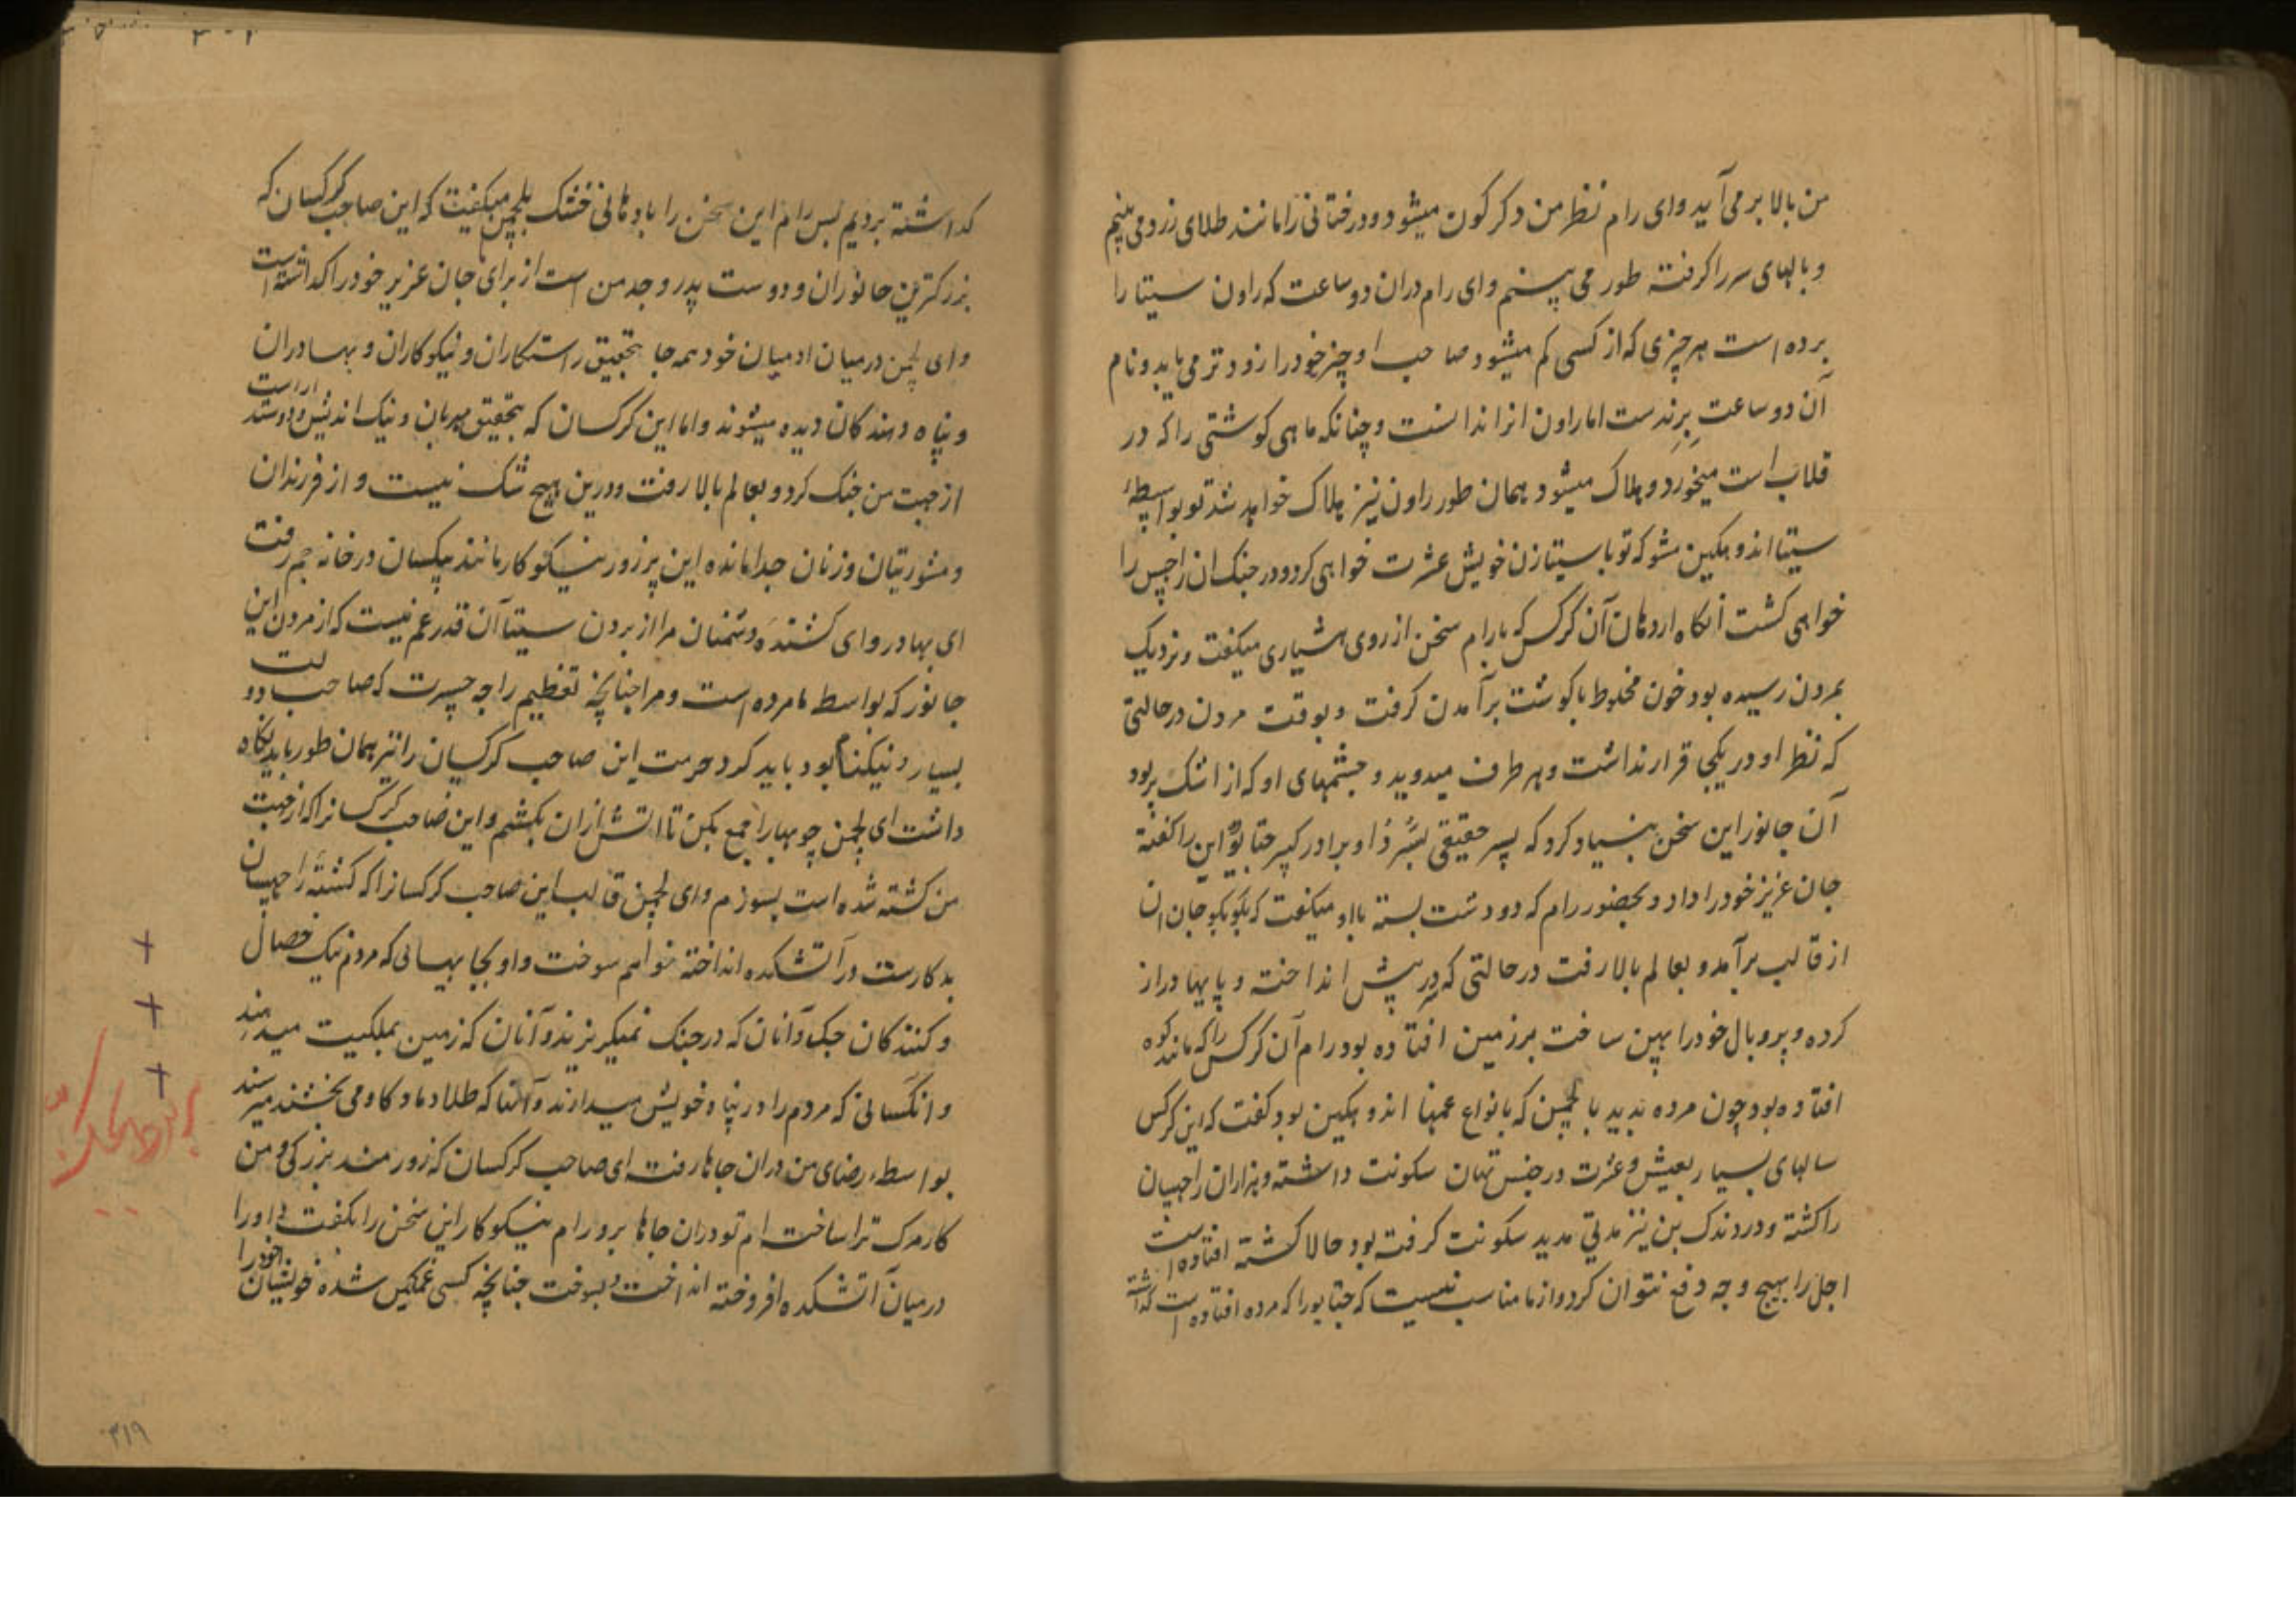 من بالا بر می آید و ای رام نظر من دکر کون میشود و درختانی را مانند طلای زرد می بینم
و بالهای سر را کرفته طور می بینم و ای رام دران دو ساعت که راون سیتا را
برده است هر چیزی که از کسی کم میشود صاحب او چیز خود را زود تر می یابد و نام
آن دو ساعت برندست اما راون انرا ندانست و چنانکه ماهی کوشتی را که در
قلاب است میخورد و هلاک میشود همان طور راون نیز هلاک خواهد شد تو بواسطهٔ
سیتا اندوهکین مشو که تو با سیتا زن خویش عشرت خواهی کرد و در جنک ان راچپس را
خواهی کشت آنکاه از دهان آن کرکس که با رام سخن از روی هشیاری میکفت و نزدیک
بمردن رسیده بود خون مخلوط با کوشت برآمدن کرفت و بوقت مردن در حالتی
که نظر او در یکجی قرار نداشت و بهر طرف میدوید و چشمهای او که از اشک پر بود
آن جانور این سخن بنیاد کرد که پسر حقیقی و برادر این را کفته
جان عزیز خود را داد و بحضور رام که دو دست بسته با او میکفت که بکو بکو جان ان
از قالب برآمد و بعالم بالا رفت در حالتی که سر در پیش انداخته و پایها دراز
کرده و پر و بال خود را پهن ساخت بر زمین افتاده بود رام آن کرکس را که مانند کوه
افتاده بود چون مرده بدید با لچمن که بانواع غمها اندوهکین بود کفت که این کرکس
سالهای بسیار بعیش و عشرت در سکونت داشته و هزاران راچپسان
را کشته و در دندک بن نیز مدتی مدید سکونت کرفته بود حالا کشته افتاده است
اجل را بهیچ وجه دفع نتوان کرد و از ما مناسب نیست که جتایو را که مرده افتاده است کذاشته
کداشته برویم پس رام این سخن را با دهانی خشک بلچمن میکفت که این صاحب کرکسان که
بزرکترین جانوران و دوست پدر و جد من است از برای جان عزیز خود را کداشته است
و ای لچمن در میان ادمیان خود همه جا بتحقیق راستکاران و نیکوکاران و بهادران
و پناه دهندکان دیده میشوند و اما این کرکسان که بتحقیق مهربان و نیک اندیش و دوستدار است
از جهت من جنک کرد و بعالم بالا رفت و درین هیچ شک نیست و از فرزندان
و مشورتیان و زنان جدا مانده این پر زور نیکوکار مانند بیکسان در خانه جم رفت
ای بهادر و ای کشندهٔ دشمنان مرا از بردن سیتا آن قدر غم نیست که از مردن این
جانور که بواسطه ما مرده است و مرا چنانچه تعظیم راجه جسرت که صاحب دولت
بسیار و نیکنام بود باید کرد حرمت این صاحب کرکسیان را نیز همان طور باید نکاه
داشت ای لچمن چوبها را جمع بکن تا اتش ازان بکشم و این صاحب کرکسانرا که از جهت
من کشته شده است بسوزم و ای لچمن قالب این صاحب کرکسانرا که کشتهٔ راچپسان
بدکارست در آتشکده انداخته خواهم سوخت و او بجایهائی که مردم نیک خصال
و کنندکان جک و آنان که در جنک نمیکریزند و آنان که زمین بملکیت میدهند
و انکسانی که مردم را در پناه خویش میدارند و آنها که طلا و ماده کاو می بخشند میرسند
بواسطه رضای من دران جاها رفت ای صاحب کرکسان که زورمند بزرکی و من
کار مرک ترا ساخته ام تو دران جاها برو رام نیکوکار این سخن را بکفت و او را
در میان آتشکده افروخته انداخت و بسوخت چنانچه کسی غمکین شده خویشان خود را
۳۱۹